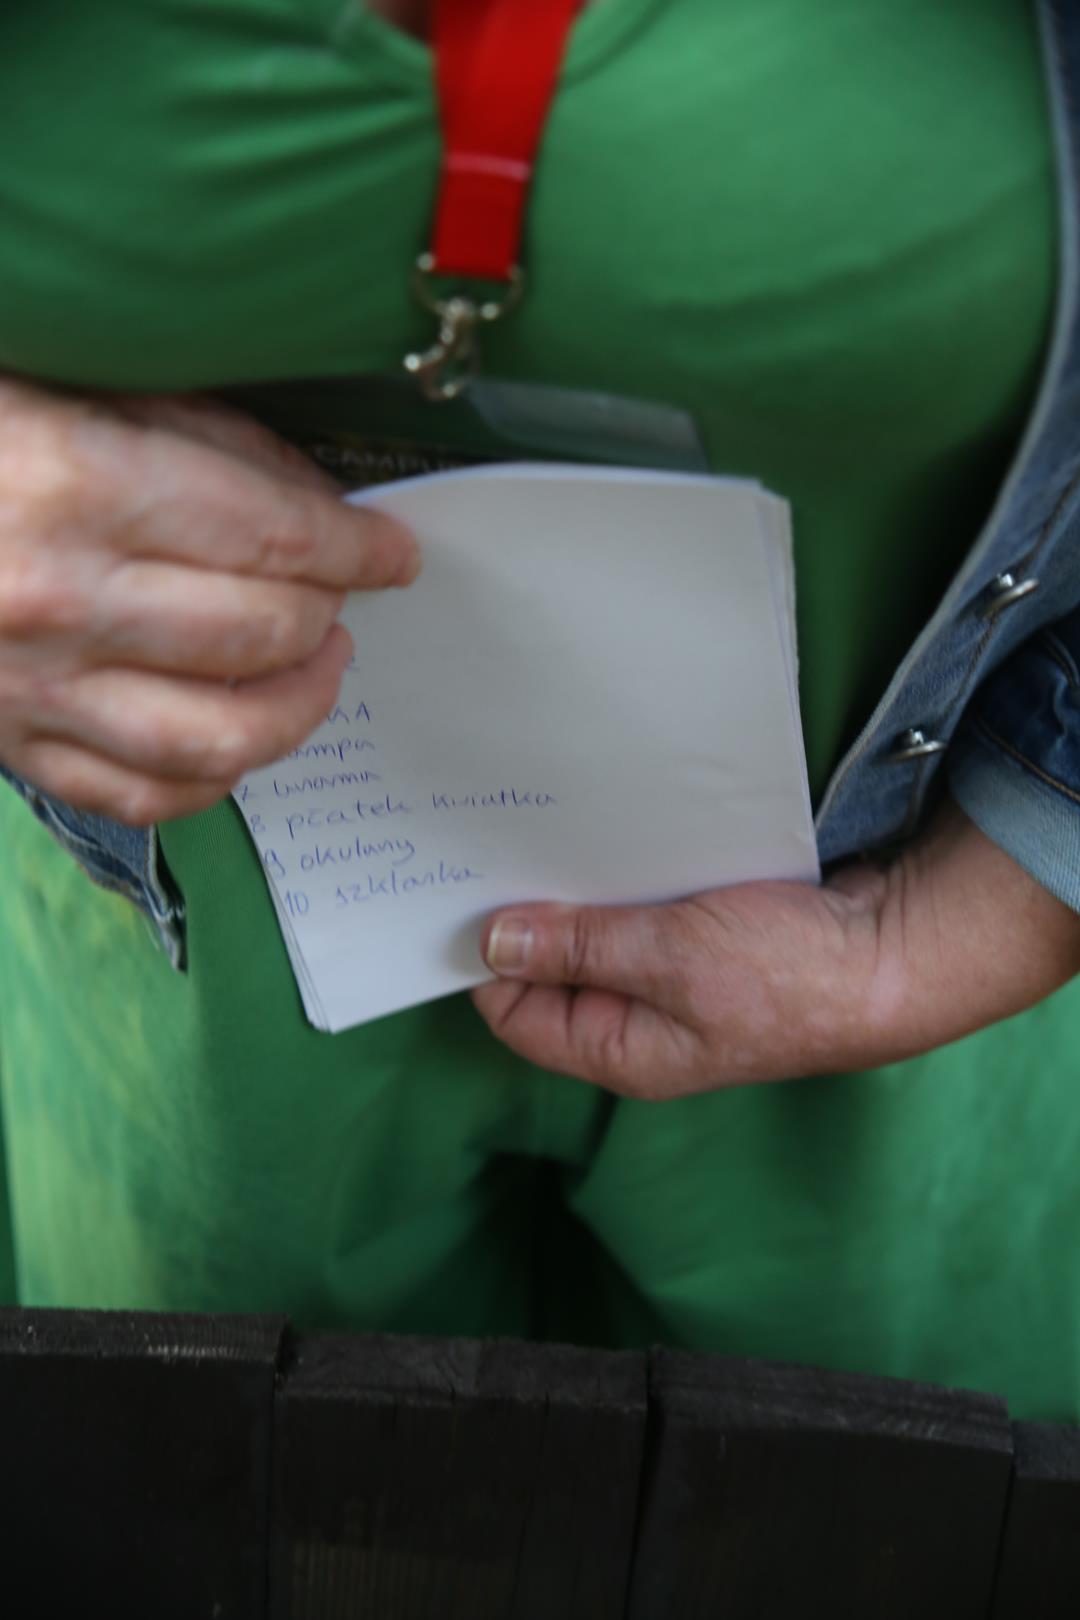 CAMPU
KA
ampa
7 brama
8 płatek kwiatka
9 okulary
10 szklanka